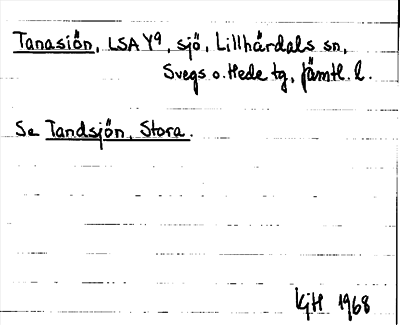 Tanasiön, LSA Y9, sjö, Lillhärdals sn,
Svegs o. Hede tg, Jämtl. l.
Se Tandsjön, Stora.
KjH 1968